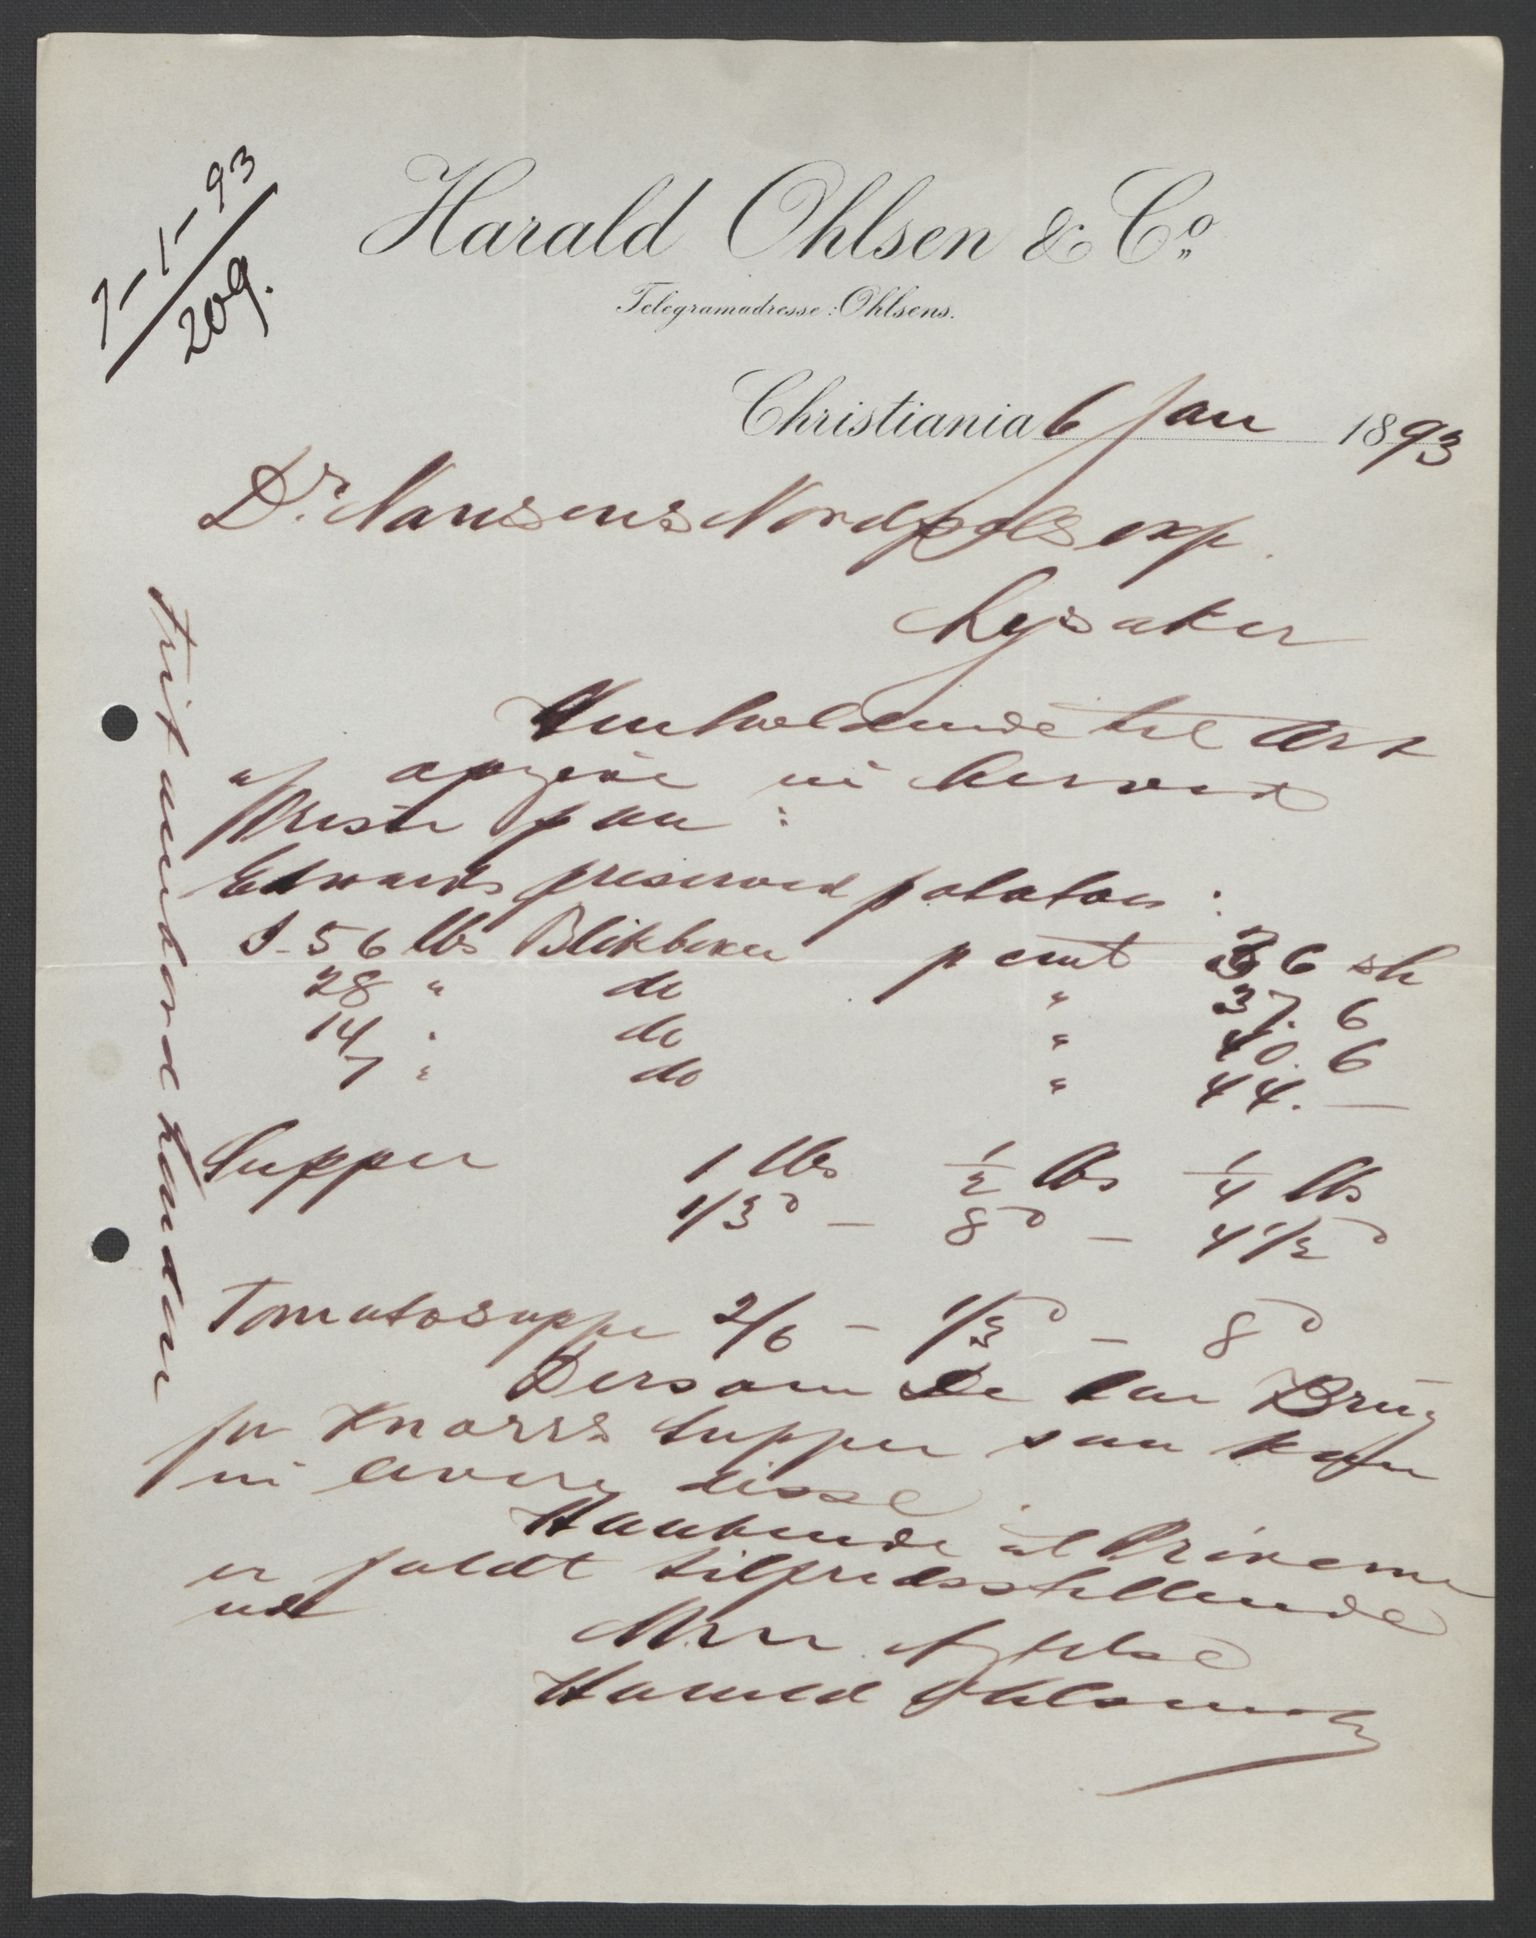 7-1-93
209.
Harald Ohlsen & Co.
Telegramadresse: Ohlsens.
Christiania 6 Jan 1893
Dr. Nansens Nordpols exp.
Lysaker
Henholdende til
opgive vi herved
Priser paa :
Edwards preserved potatoes :
I 56 lbs Blikboxer p cwt 36 sh
28 " do " 37. 6
14 " do " 40. 6
7 " do " 44. —
Supper 1 lbs 1/2 lbs 1/4 lbs
1/3 d — 8 d — 4 1/2 d
Tomatosuppe 2/6 — 1/3 d — 8 d
Dersom De har Brug
for Knorrs Supper saa kan
vi levere disse.
Haabende at Priserne
er faldt tilfredsstillende
ud
Med Agtelse
Harald Ohlsen & Co
frit ombord London